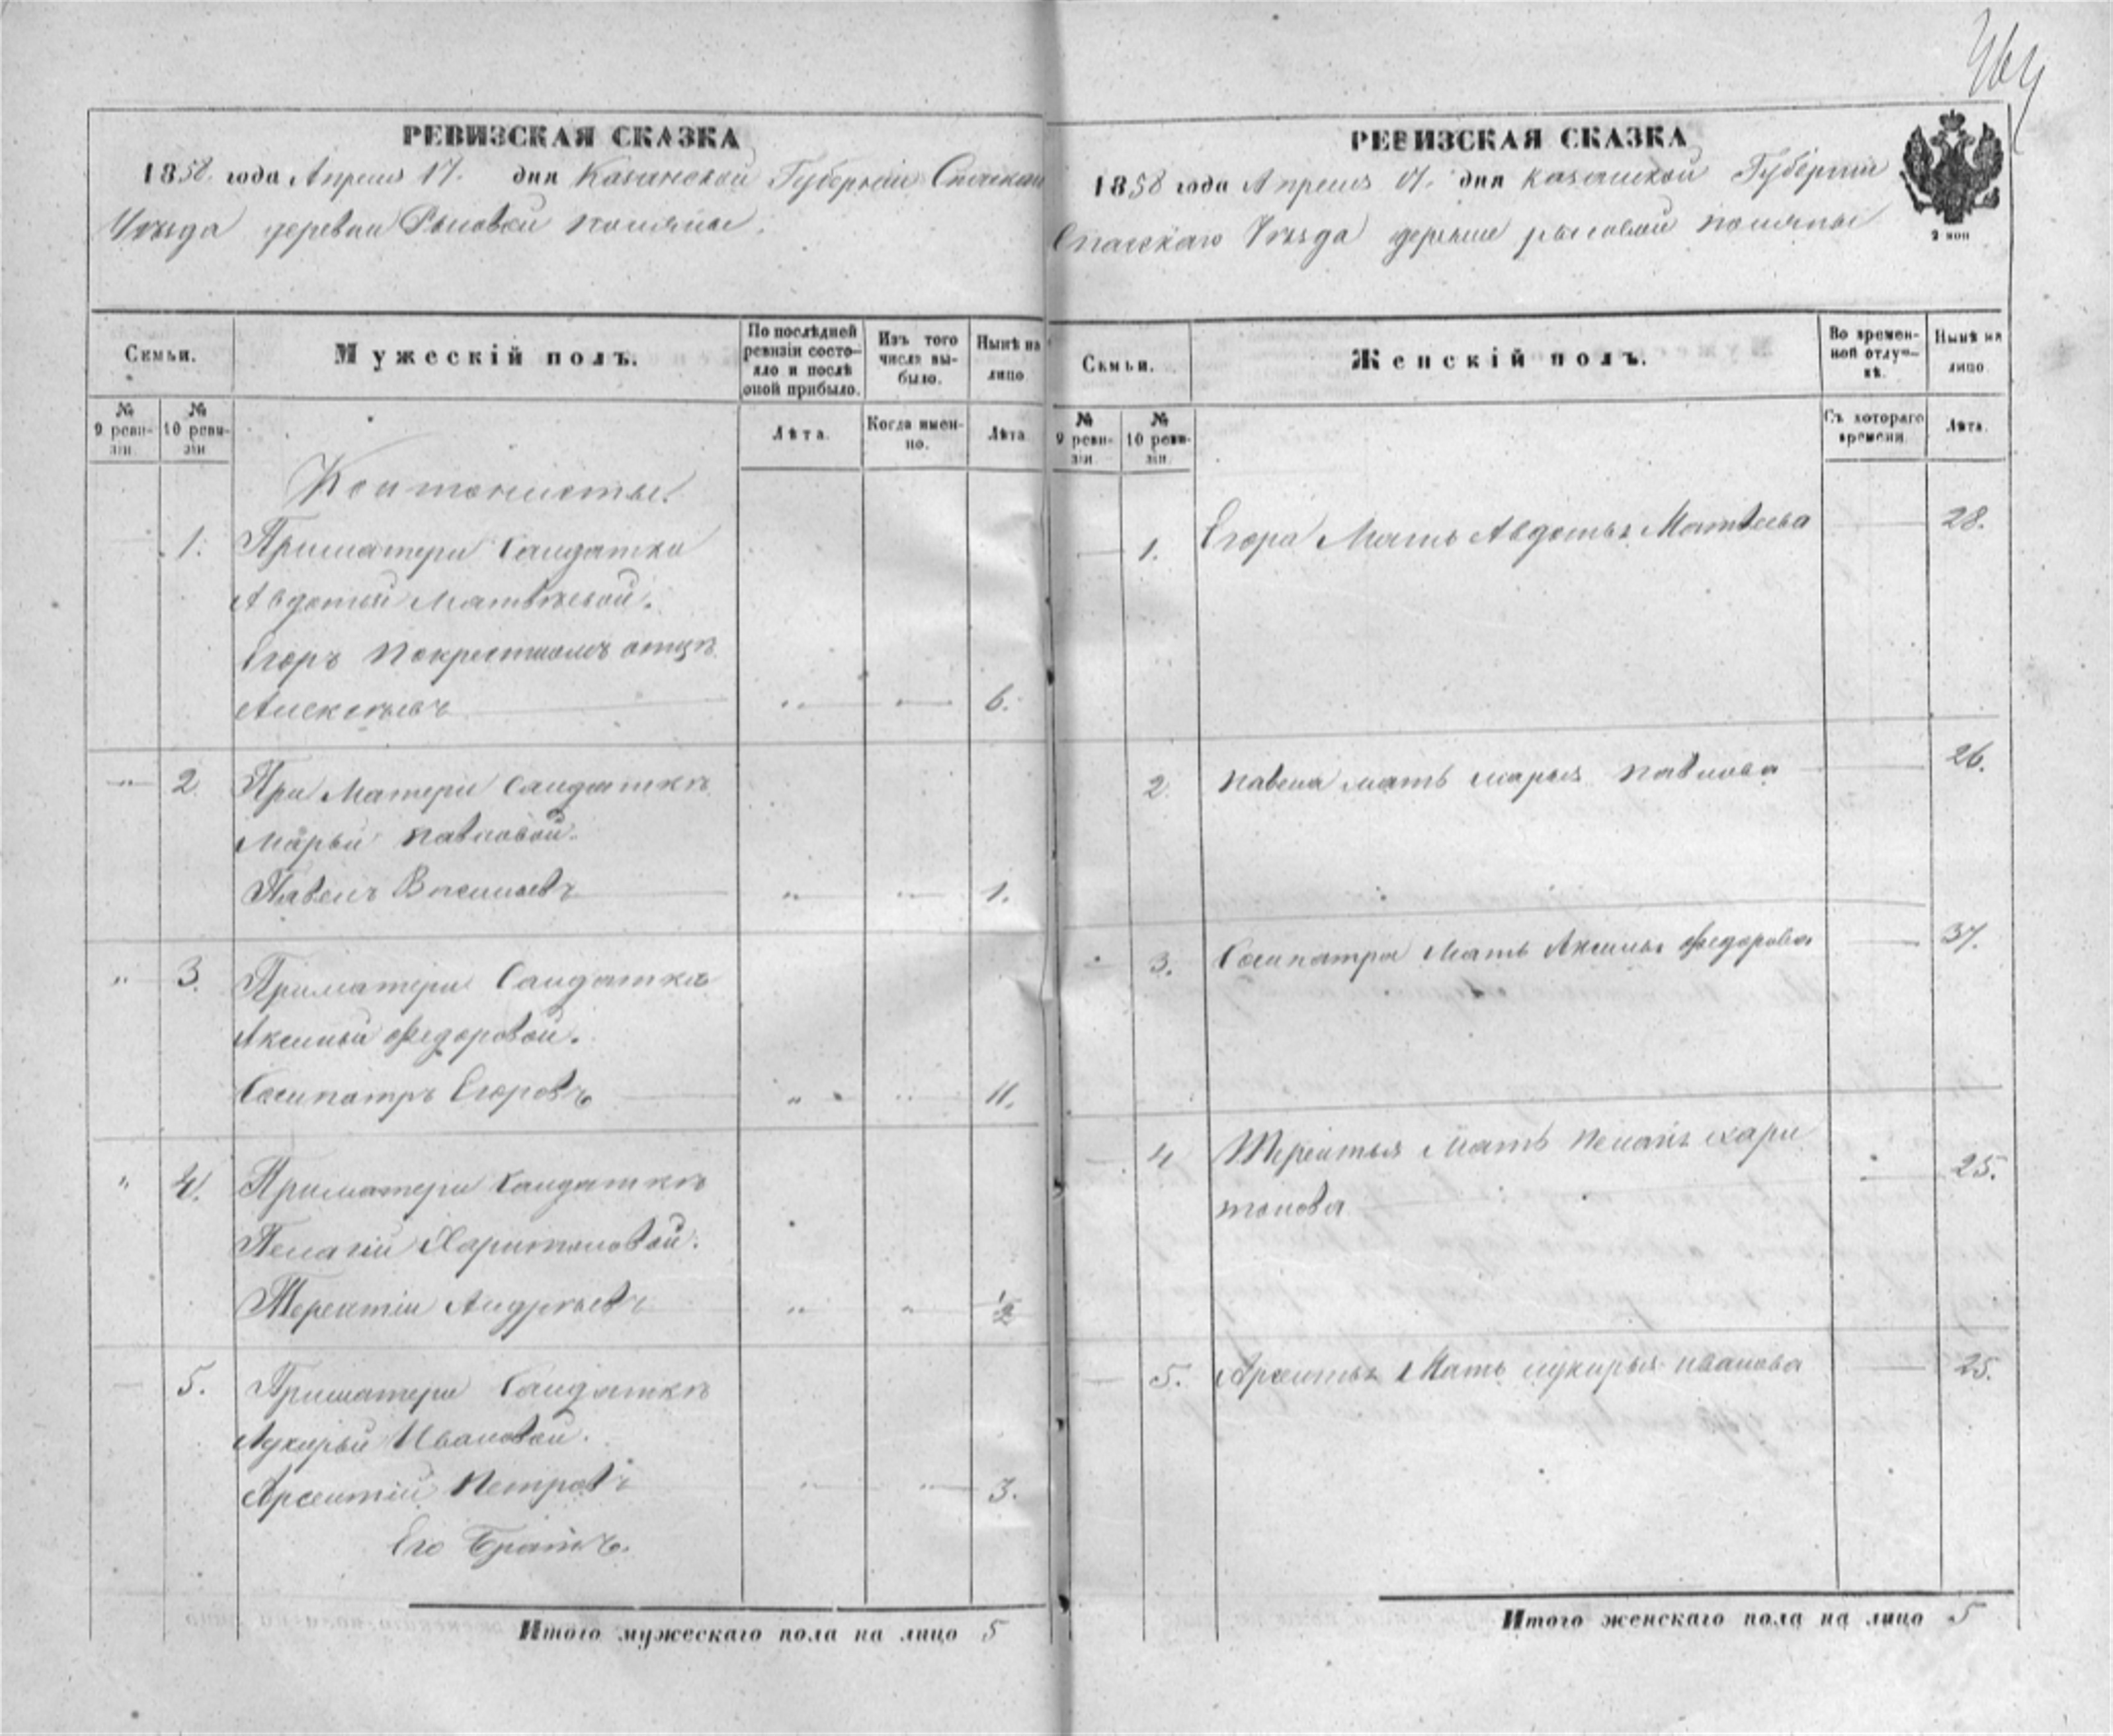 464
РЕВИЗСКАЯ СКАЗКА
1858 года Апреля 17. дня Казанской Губернии Спаскаго
Уезда деревни Рысовой поляны.
Семьи.
Мужескій полъ.
По послѣдней ревизіи состояло и послѣ оной прибыло.
Изъ того числа выбыло.
Нынѣ на лицо
№ 9 ревизіи.
№ 10 ревизіи
Лѣта.
Когда именно.
Лѣта
Кантонисты.
1. Приматери Салдатки
Авдотьи Матвѣевой.
Егоръ покрестномъ отцѣ
Алексѣевъ " — 6.
" 2. При Матери Салдаткѣ
Марьи Павловой.
Павелъ Васильевъ " " 1.
" 3. Приматери Салдатке
Аксиньи Федоровой.
Сосипатръ Егоровъ " " 11.
" 4. Приматери Салдаткѣ
Пелагіи Харитоновой.
Терентіи Андрѣевъ " " 1/2
— 5. Приматери Салдаткѣ
Лукирьи Ивановой.
Арсентіи Петровъ " " 3.
Его Братъ.
Итого мужескаго пола на лицо 5
РЕВИЗСКАЯ СКАЗКА
1858 года Апреля 17. дня казанской Губернии
Спасскаго Уѣзда деревни рысовой поляны
2 коп
Семьи.
Женскій полъ.
Во временной отлучкѣ.
Нынѣ на лицо.
№ 9 ревизіи
№ 10 ревизіи.
Съ котораго времени.
Лѣта.
— 1. Егора Мать Авдотья Матвеева — 28.
2. павела мать марья павлова — 26.
3. Сосипатра Мать Аксинья Федорова — 37.
— 4 Терентья Мать пелагѣя хари
тонова — 25.
— 5. Арсентья Мать лукирья иванова — 25.
Итого женскаго пола на лицо 5